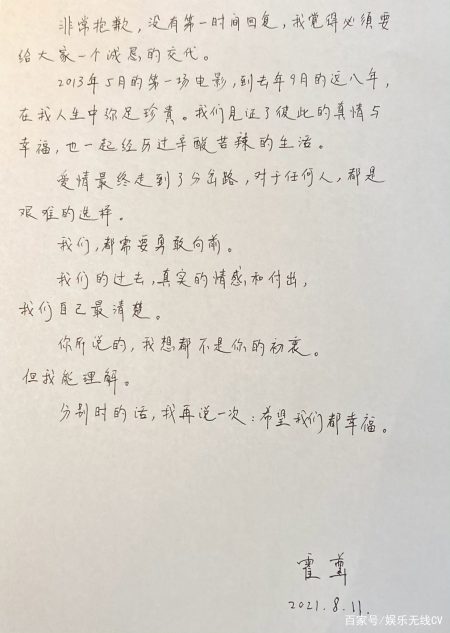 非常抱歉,没有第一时间回复,我觉得必须要
给大家一个诚恳的交代。
2013年5月的第一场电影,到去年9月的这八年,
在我人生中弥足珍贵。我们见证了彼此的真情与
幸福,也一起经历过辛酸苦辣的生活。
爱情最终走到了分岔路,对于任何人,都是
艰难的选择。
我们,都需要勇敢向前。
我们的过去,真实的情感和付出,
我们自己最清楚。
你所说的,我想都不是你的初衷。
但我能理解。
分别时的话,我再说一次:希望我们都幸福。
霍尊
2021.8.11.
百家号/娱乐无线CV